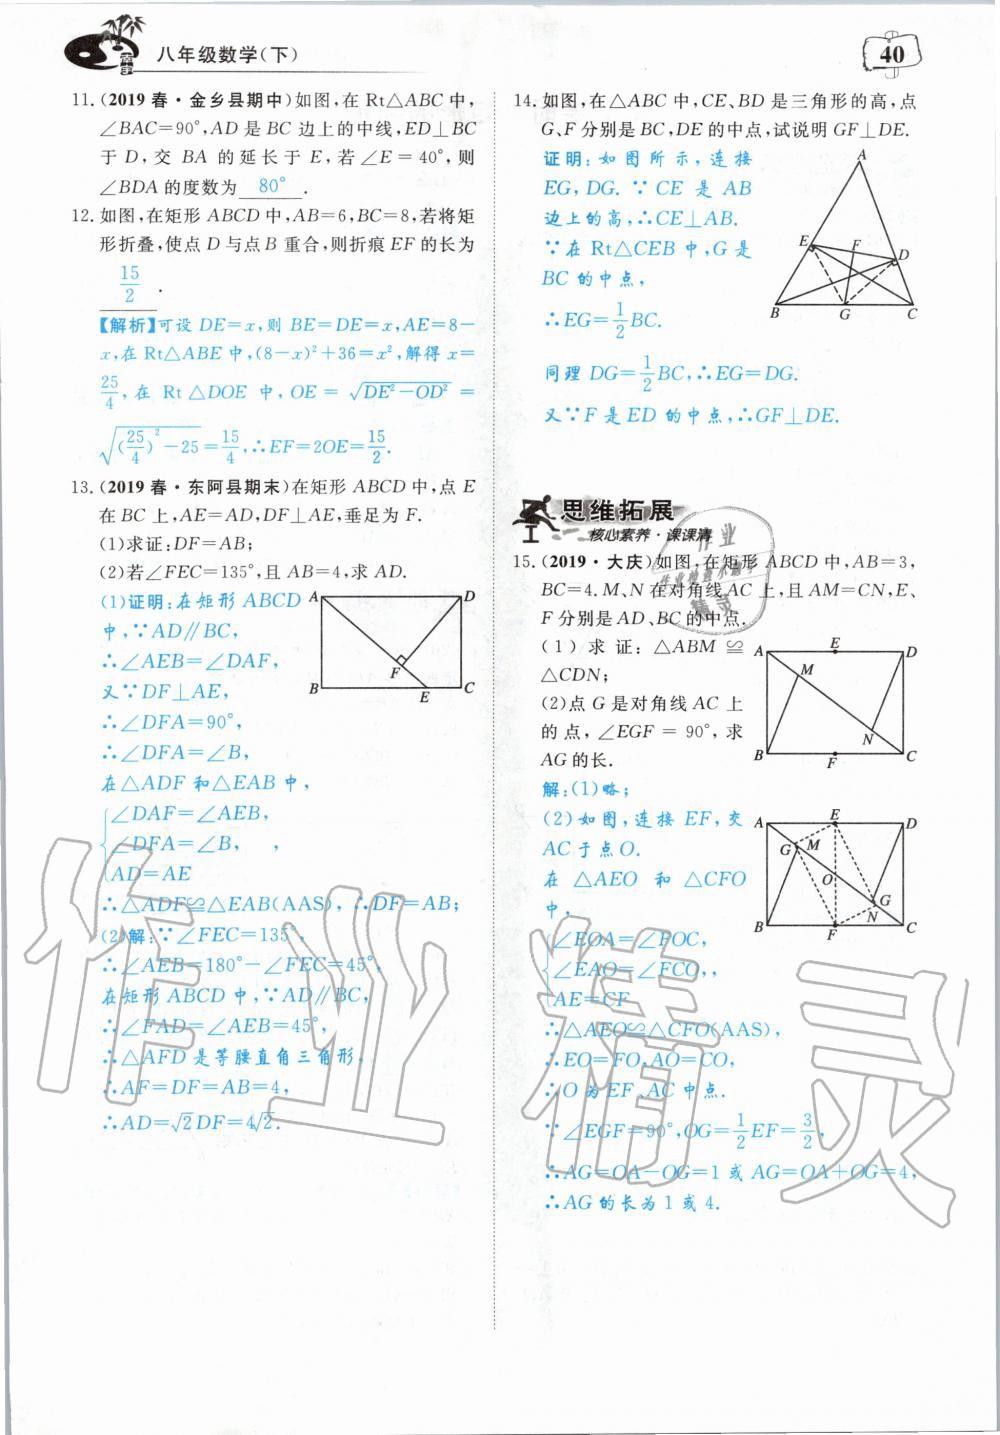 八年级数学(下)
40
11.(2019春·金乡县期中)如图,在Rt△ABC中,
∠BAC=90°,AD是BC边上的中线,ED⊥BC
于D,交BA的延长于E,若∠E=40°,则
∠BDA的度数为 80° .
12.如图,在矩形ABCD中,AB=6,BC=8,若将矩
形折叠,使点D与点B重合,则折痕EF的长为
15/2 .
【解析】可设DE=x,则BE=DE=x,AE=8-
x,在Rt△ABE中,(8-x)²+36=x²,解得x=
25/4,在Rt△DOE中,OE=√(DE²-OD²)=
√((25/4)²-25)=15/4,∴EF=2OE=15/2.
13.(2019春·东阿县期末)在矩形ABCD中,点E
在BC上,AE=AD,DF⊥AE,垂足为F.
(1)求证:DF=AB;
(2)若∠FEC=135°,且AB=4,求AD.
(1)证明:在矩形ABCD
中,∵AD∥BC,
∴∠AEB=∠DAF,
又∵DF⊥AE,
∴∠DFA=90°,
∴∠DFA=∠B,
在△ADF和△EAB中,
∠DAF=∠AEB,
∠DFA=∠B, ,
AD=AE
∴△ADF≌△EAB(AAS),∴DF=AB;
(2)解:∵∠FEC=135°,
∴∠AEB=180°-∠FEC=45°,
在矩形ABCD中,∵AD∥BC,
∴∠FAD=∠AEB=45°,
∴△AFD是等腰直角三角形,
∴AF=DF=AB=4,
∴AD=√2DF=4√2.
A
D
F
B
E
C
14.如图,在△ABC中,CE、BD是三角形的高,点
G、F分别是BC,DE的中点,试说明GF⊥DE.
证明:如图所示,连接
EG,DG.∵CE是AB
边上的高,∴CE⊥AB.
∵在Rt△CEB中,G是
BC的中点,
∴EG=1/2BC.
同理DG=1/2BC,∴EG=DG.
又∵F是ED的中点,∴GF⊥DE.
A
E
F
D
B
G
C
思维拓展
核心素养·课课清
15.(2019·大庆)如图,在矩形ABCD中,AB=3,
BC=4.M、N在对角线AC上,且AM=CN,E、
F分别是AD、BC的中点.
(1)求证:△ABM≌
△CDN;
(2)点G是对角线AC上
的点,∠EGF=90°,求
AG的长.
解:(1)略;
(2)如图,连接EF,交
AC于点O.
在△AEO和△CFO
中,
∠EOA=∠FOC,
∠EAO=∠FCO,,
AE=CF
∴△AEO≌△CFO(AAS),
∴EO=FO,AO=CO,
∴O为EF、AC中点.
∵∠EGF=90°,OG=1/2EF=3/2,
∴AG=OA-OG=1或AG=OA+OG=4,
∴AG的长为1或4.
A
E
D
M
N
B
F
C
A
E
D
G
M
O
G
N
B
F
C
作业
精灵
作业精灵